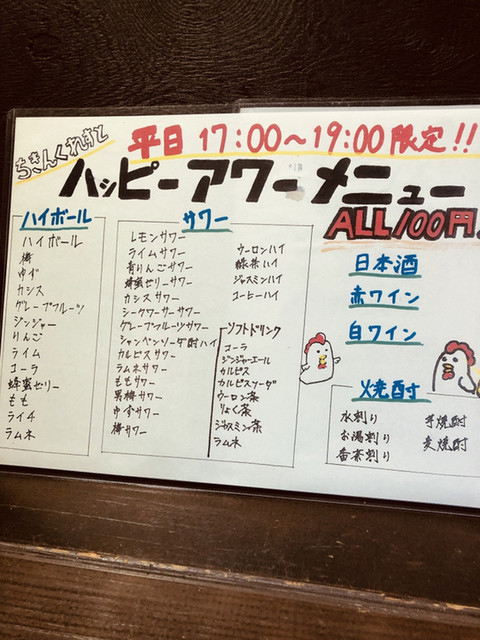 ちきんくれすと
平日 17:00～19:00 限定!!
ハッピーアワーメニュー
ALL100円
ハイボール
ハイボール
梅
ゆず
カシス
グレープフルーツ
ジンジャー
りんご
ライム
コーラ
蜂蜜ゼリー
もも
ライチ
ラムネ
サワー
レモンサワー
ライムサワー
青りんごサワー
蜂蜜ゼリーサワー
カシスサワー
シークワーサーサワー
グレープフルーツサワー
シャンペンソーダ酎ハイ
カルピスサワー
ラムネサワー
ももサワー
黒梅サワー
ゆずサワー
梅サワー
ウーロンハイ
緑茶ハイ
ジャスミンハイ
コーヒーハイ
ソフトドリンク
コーラ
ジンジャーエール
カルピス
カルピスソーダ
ウーロン茶
りょく茶
ジャスミン茶
ラムネ
日本酒
赤ワイン
白ワイン
焼酎
水割り
お湯割り
番茶割り
芋焼酎
麦焼酎